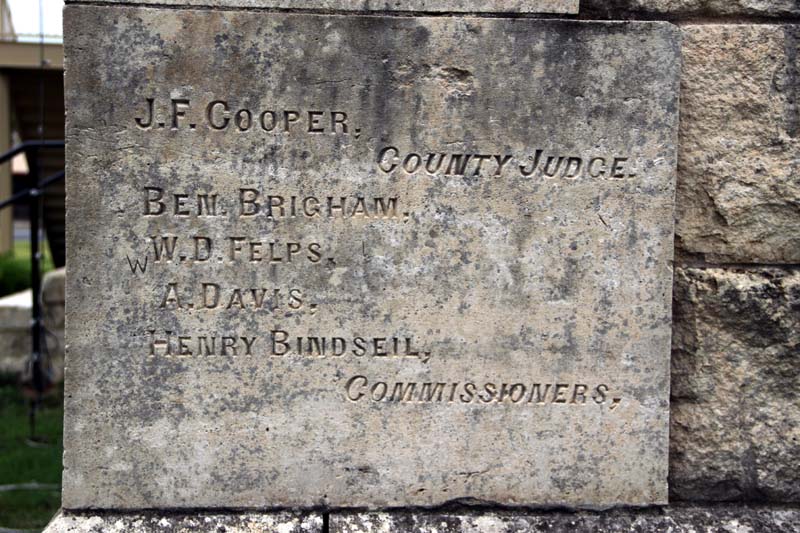 J.F. COOPER,
COUNTY JUDGE.
BEN. BRIGHAM,
W W.D. FELPS,
A. DAVIS,
HENRY BINDSEIL,
COMMISSIONERS,